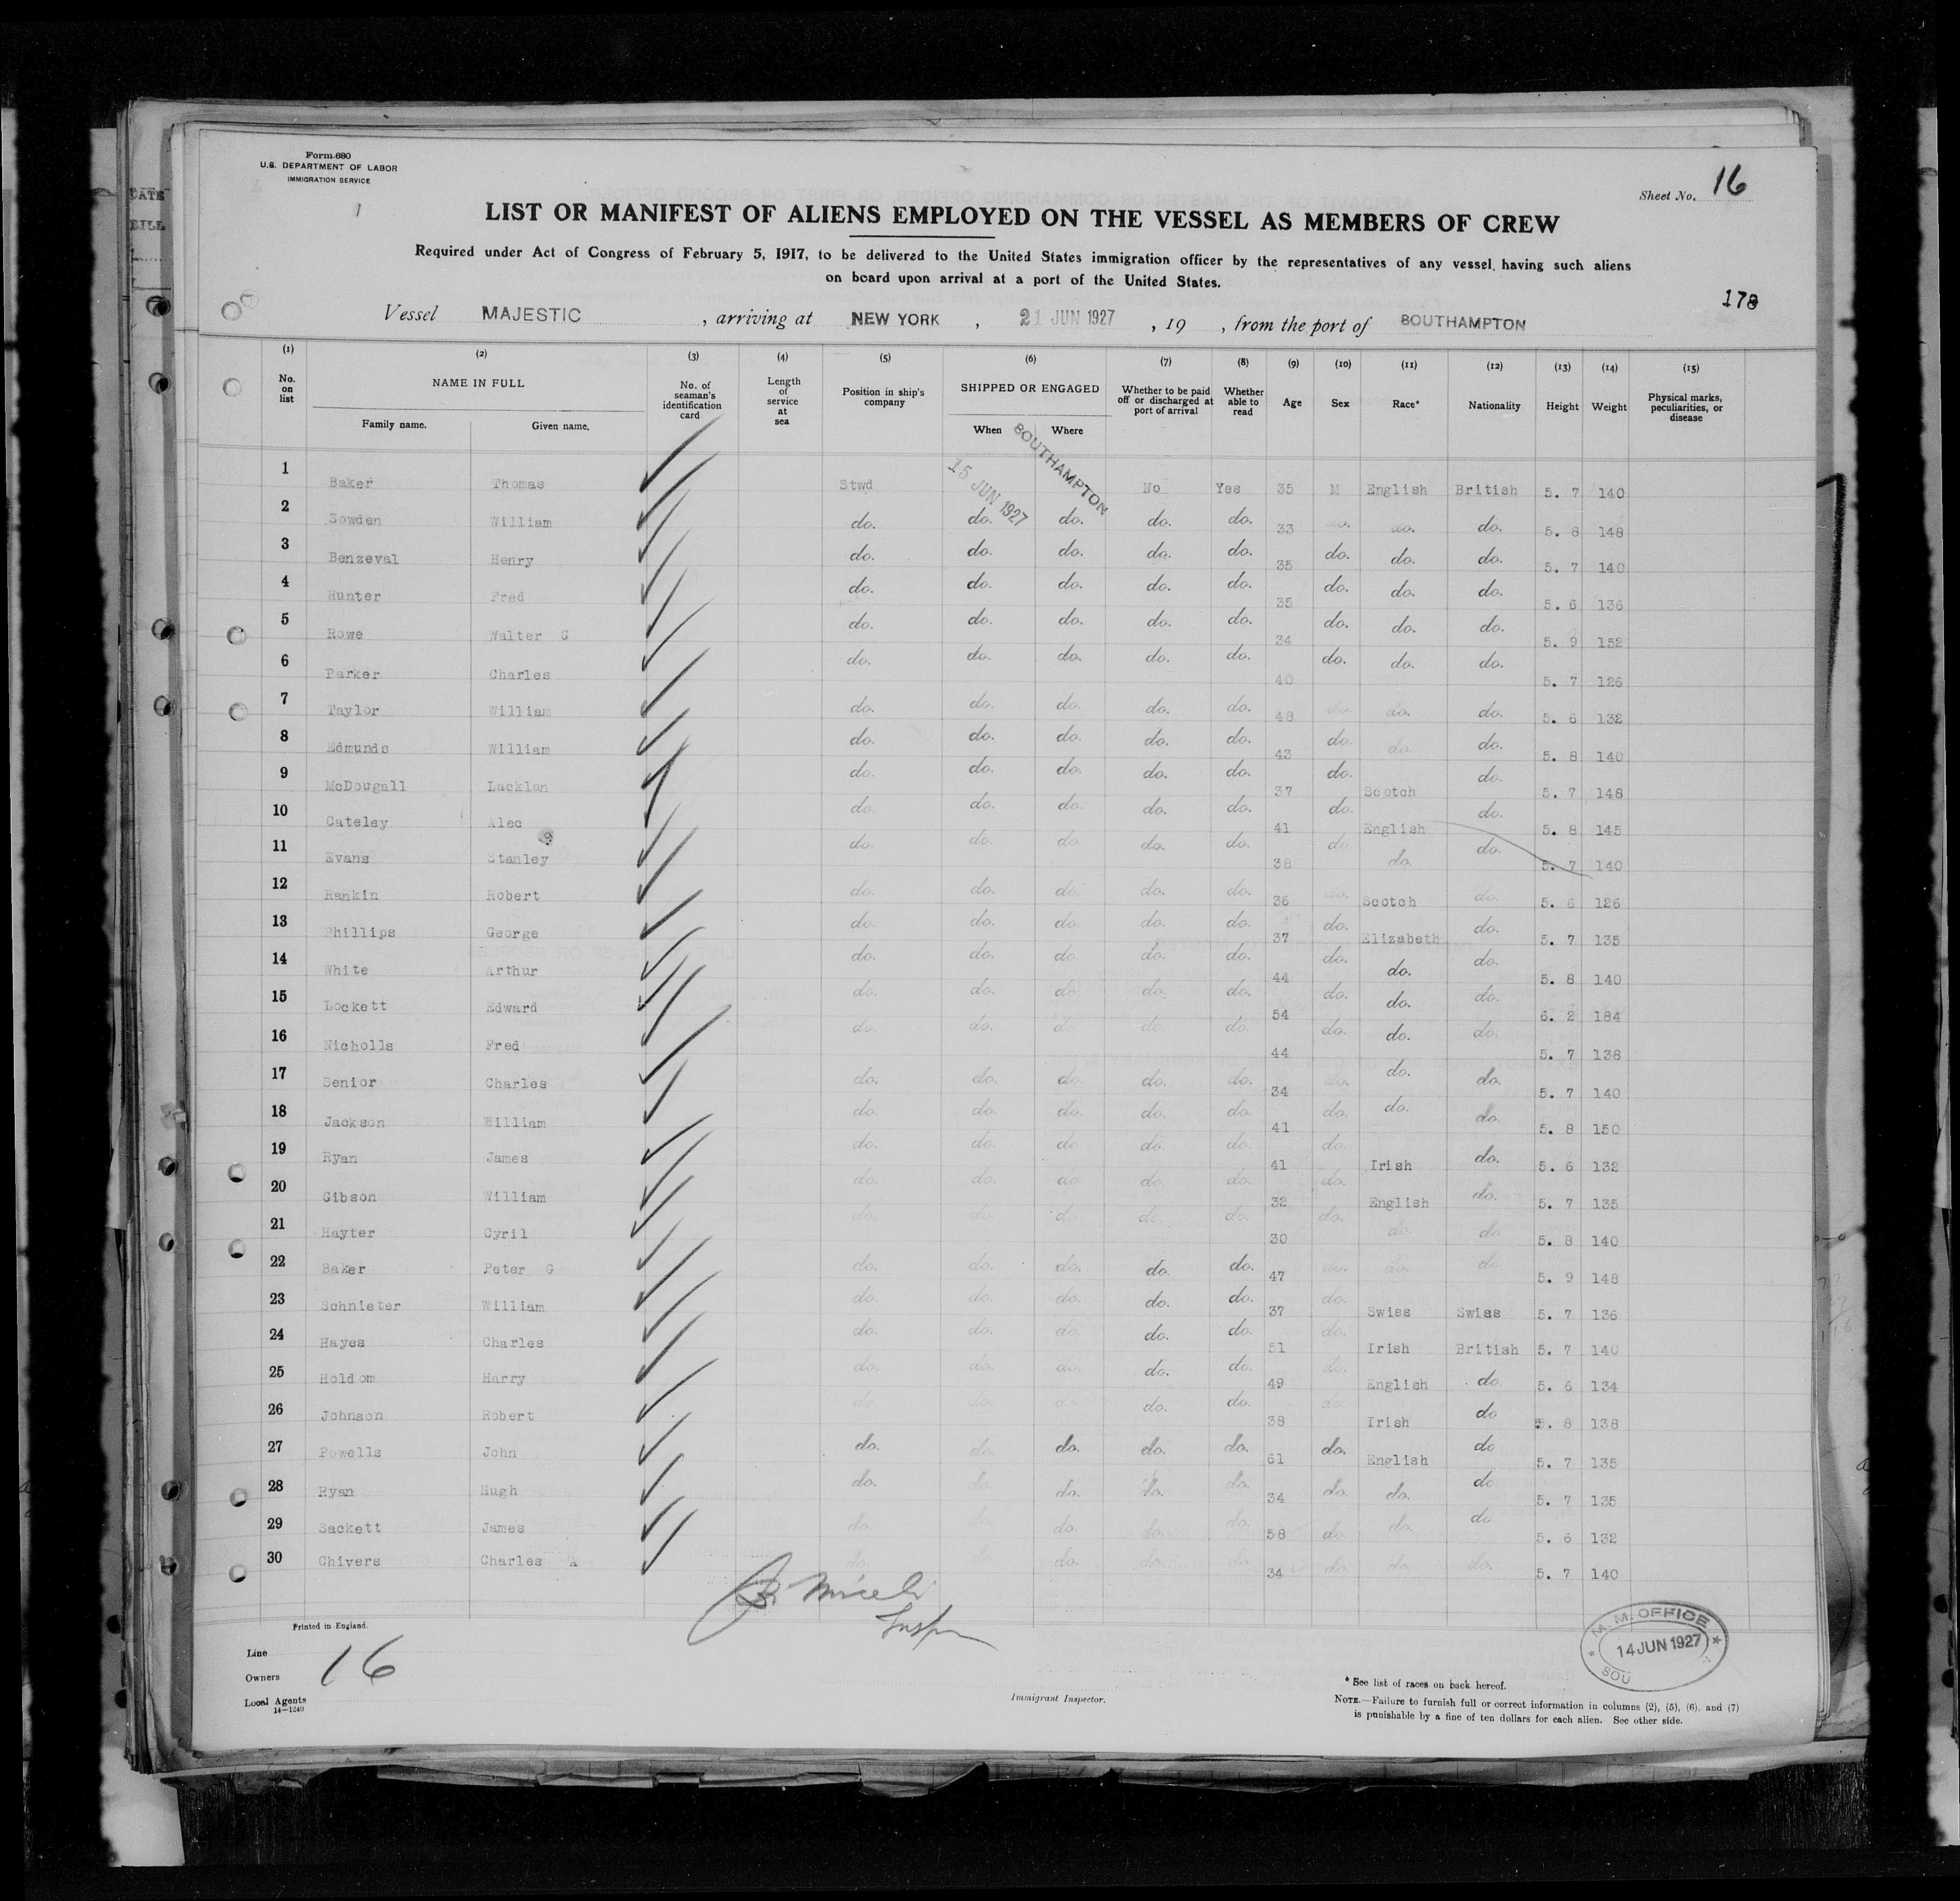 Form 680
U.S. DEPARTMENT OF LABOR
IMMIGRATION SERVICE
Sheet No. 16
LIST OR MANIFEST OF ALIENS EMPLOYED ON THE VESSEL AS MEMBERS OF CREW
Required under Act of Congress of February 5, 1917, to be delivered to the United States immigration officer by the representatives of any vessel having such aliens
on board upon arrival at a port of the United States.
178
Vessel MAJESTIC , arriving at NEW YORK , 21 JUN 1927 , 19 , from the port of SOUTHAMPTON
(1) (2) (3) (4) (5) (6) (7) (8) (9) (10) (11) (12) (13) (14) (15)
No. on list NAME IN FULL Family name. Given name. No. of seaman's identification card Length of service at sea Position in ship's company SHIPPED OR ENGAGED When Where Whether to be paid off or discharged at port of arrival Whether able to read Age Sex Race* Nationality Height Weight Physical marks, peculiarities, or disease
15 JUN 1927 SOUTHAMPTON
1 Baker Thomas Stwd No Yes 35 M English British 5. 7 140
2 Sowden William do. do. do. do. do. 33 do. do. do. 5. 8 148
3 Benzeval Henry do. do. do. do. do. 35 do. do. do. 5. 7 140
4 Hunter Fred do. do. do. do. do. 35 do. do. do. 5. 6 136
5 Rowe Walter G do. do. do. do. do. 34 do. do. do. 5. 9 152
6 Parker Charles do. do. do. do. do. 40 do. do. do. 5. 7 126
7 Taylor William do. do. do. do. do. 48 do. do. do. 5. 6 132
8 Edmunds William do. do. do. do. do. 43 do. do. do. 5. 8 140
9 McDougall Lacklan do. do. do. do. do. 37 do. Scotch do. 5. 7 148
10 Cateley Alec do. do. do. do. do. 41 do. English do. 5. 8 145
11 Evans Stanley do. do. do. do. do. 38 do. do. do. 5. 7 140
12 Rankin Robert do. do. do. do. do. 36 do. Scotch do. 5. 6 126
13 Phillips George do. do. do. do. do. 37 do. Elizabeth do. 5. 7 135
14 White Arthur do. do. do. do. do. 44 do. do. do. 5. 8 140
15 Lockett Edward do. do. do. do. do. 54 do. do. do. 6. 2 184
16 Nicholls Fred do. do. do. do. do. 44 do. do. do. 5. 7 138
17 Senior Charles do. do. do. do. do. 34 do. do. do. 5. 7 140
18 Jackson William do. do. do. do. do. 41 do. do. do. 5. 8 150
19 Ryan James do. do. do. do. do. 41 do. Irish do. 5. 6 132
20 Gibson William do. do. do. do. do. 32 do. English do. 5. 7 135
21 Hayter Cyril do. do. do. do. do. 30 do. do. do 5. 8 140
22 Baker Peter G do. do. do. do. do. 47 do. do. do 5. 9 148
23 Schnieter William do. do. do. do. do. 37 do. Swiss Swiss 5. 7 136
24 Hayes Charles do. do. do. do. do. 51 do. Irish British 5. 7 140
25 Holdom Harry do. do. do. do. do. 49 do. English do 5. 6 134
26 Johnson Robert do. do. do. do. do. 38 do. Irish do 5. 8 138
27 Powells John do. do. do. do. do. 61 do. English do 5. 7 135
28 Ryan Hugh do. do. do. do. do. 34 do. do. do 5. 7 135
29 Sackett James do. do. do. do. do. 58 do do. do 5. 6 132
30 Chivers Charles A do. do. do. do. 34 do. do. do. 5. 7 140
Miceli
Insp
Printed in England.
Line
Owners 16
Local Agents
14—1240
Immigrant Inspector.
M. M. OFFICE
14 JUN 1927
SOU
* See list of races on back hereof.
NOTE.—Failure to furnish full or correct information in columns (2), (5), (6), and (7)
is punishable by a fine of ten dollars for each alien. See other side.